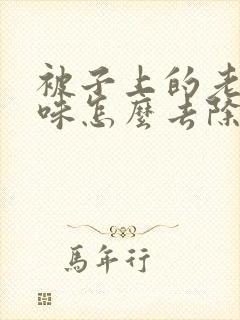 被子上的老
味怎麼去除
馬年行